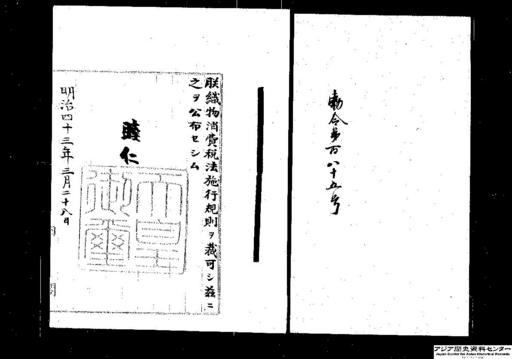 勅令第百八十五号
朕織物消費税法施行規則ヲ裁可シ茲ニ
之ヲ公布セシム
睦仁
天皇御璽
明治四十三年三月二十八日
アジア歴史資料センター
Japan Center for Asian Historical Records